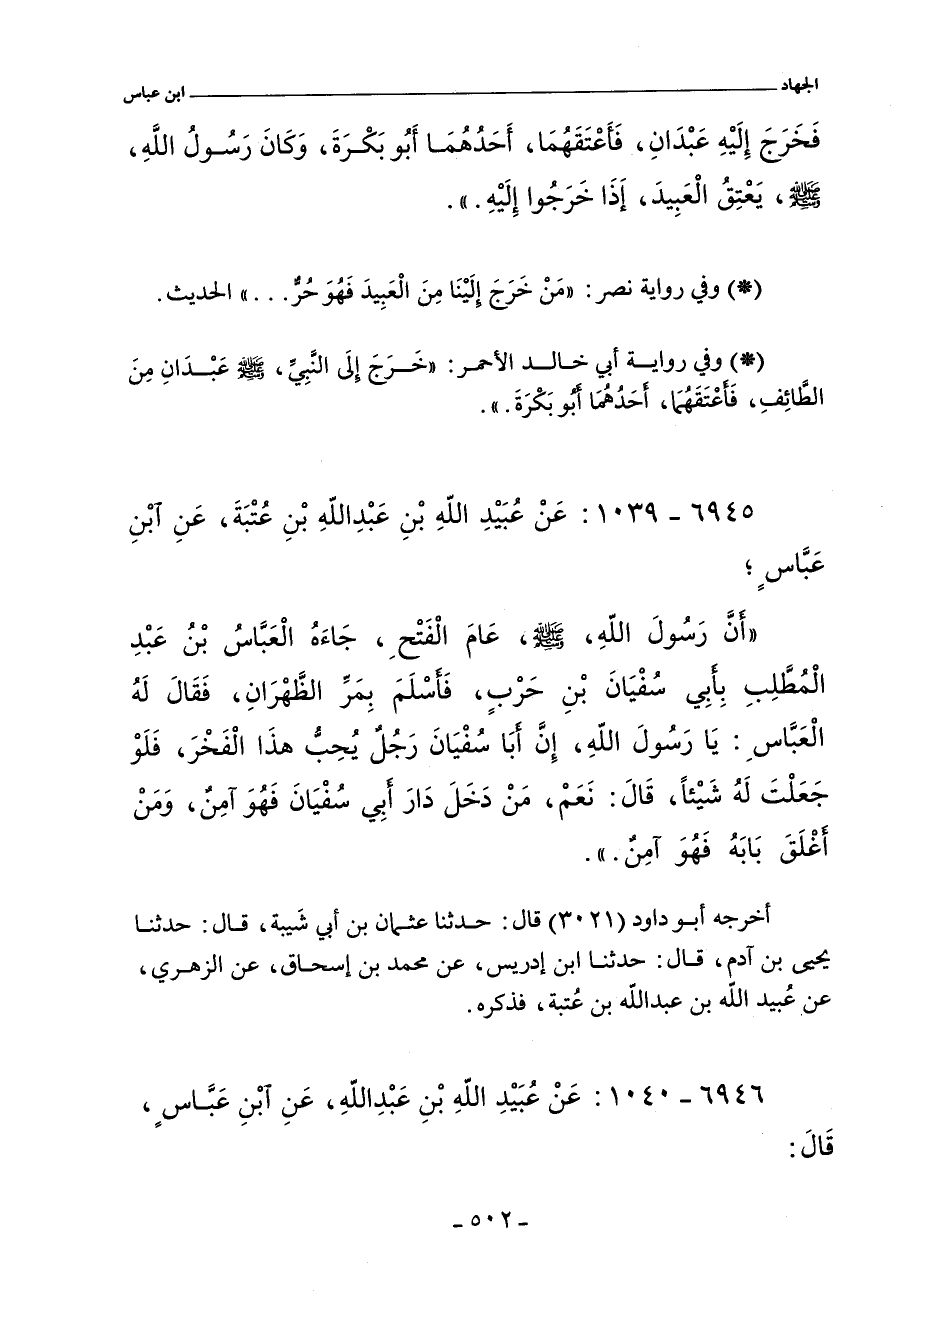 الجهاد ابن عباس
فَخَرَجَ إِلَيْهِ عَبْدَانِ، فَأَعْتَقَهُمَا، أَحَدُهُمَا أَبُو بَكْرَةَ، وَكَانَ رَسُولُ اللَّهِ،
ﷺ، يَعْتِقُ الْعَبِيدَ، إِذَا خَرَجُوا إِلَيْهِ.».
(*) وفي رواية نصر: «مَنْ خَرَجَ إِلَيْنَا مِنَ الْعَبِيدَ فَهُوَ حُرٌّ...» الحديث.
(*) وفي رواية أبي خالد الأحمر: «خَرَجَ إِلَى النَّبِيِّ، ﷺ عَبْدَانِ مِنَ
الطَّائِفِ، فَأَعْتَقَهُمَا، أَحَدُهُمَا أَبُو بَكْرَةَ.».
٦٩٤٥ - ١٠٣٩: عَنْ عُبَيْدِ اللَّهِ بْنِ عَبْدِاللَّهِ بْنِ عُتْبَةَ، عَنِ آبْنِ
عَبَّاسٍ؛
«أَنَّ رَسُولَ اللَّهِ، ﷺ، عَامَ الْفَتْحِ، جَاءَهُ الْعَبَّاسُ بْنُ عَبْدِ
الْمُطَّلِبِ بِأَبِي سُفْيَانَ بْنِ حَرْبٍ، فَأَسْلَمَ بِمَرِّ الظَّهْرَانِ، فَقَالَ لَهُ
الْعَبَّاسِ: يَا رَسُولَ اللَّهِ، إِنَّ أَبَا سُفْيَانَ رَجُلٌ يُحِبُّ هذَا الْفَخْرَ، فَلَوْ
جَعَلْتَ لَهُ شَيْئاً، قَالَ: نَعَمْ، مَنْ دَخَلَ دَارَ أَبِي سُفْيَانَ فَهُوَ آمِنٌ، وَمَنْ
أَغْلَقَ بَابَهُ فَهُوَ آمِنٌ.».
أخرجه أبو داود (٣٠٢١) قال: حدثنا عثمان بن أبي شَيبة، قال: حدثنا
يحيى بن آدم، قال: حدثنا ابن إدريس، عن محمد بن إسحاق، عن الزهري،
عن عُبيد اللَّه بن عبداللَّه بن عُتبة، فذكره.
٦٩٤٦ - ١٠٤٠: عَنْ عُبَيْدِ اللَّهِ بْنِ عَبْدِاللَّهِ، عَنِ آبْنِ عَبَّاسٍ،
قَالَ:
- ٥٠٢ -